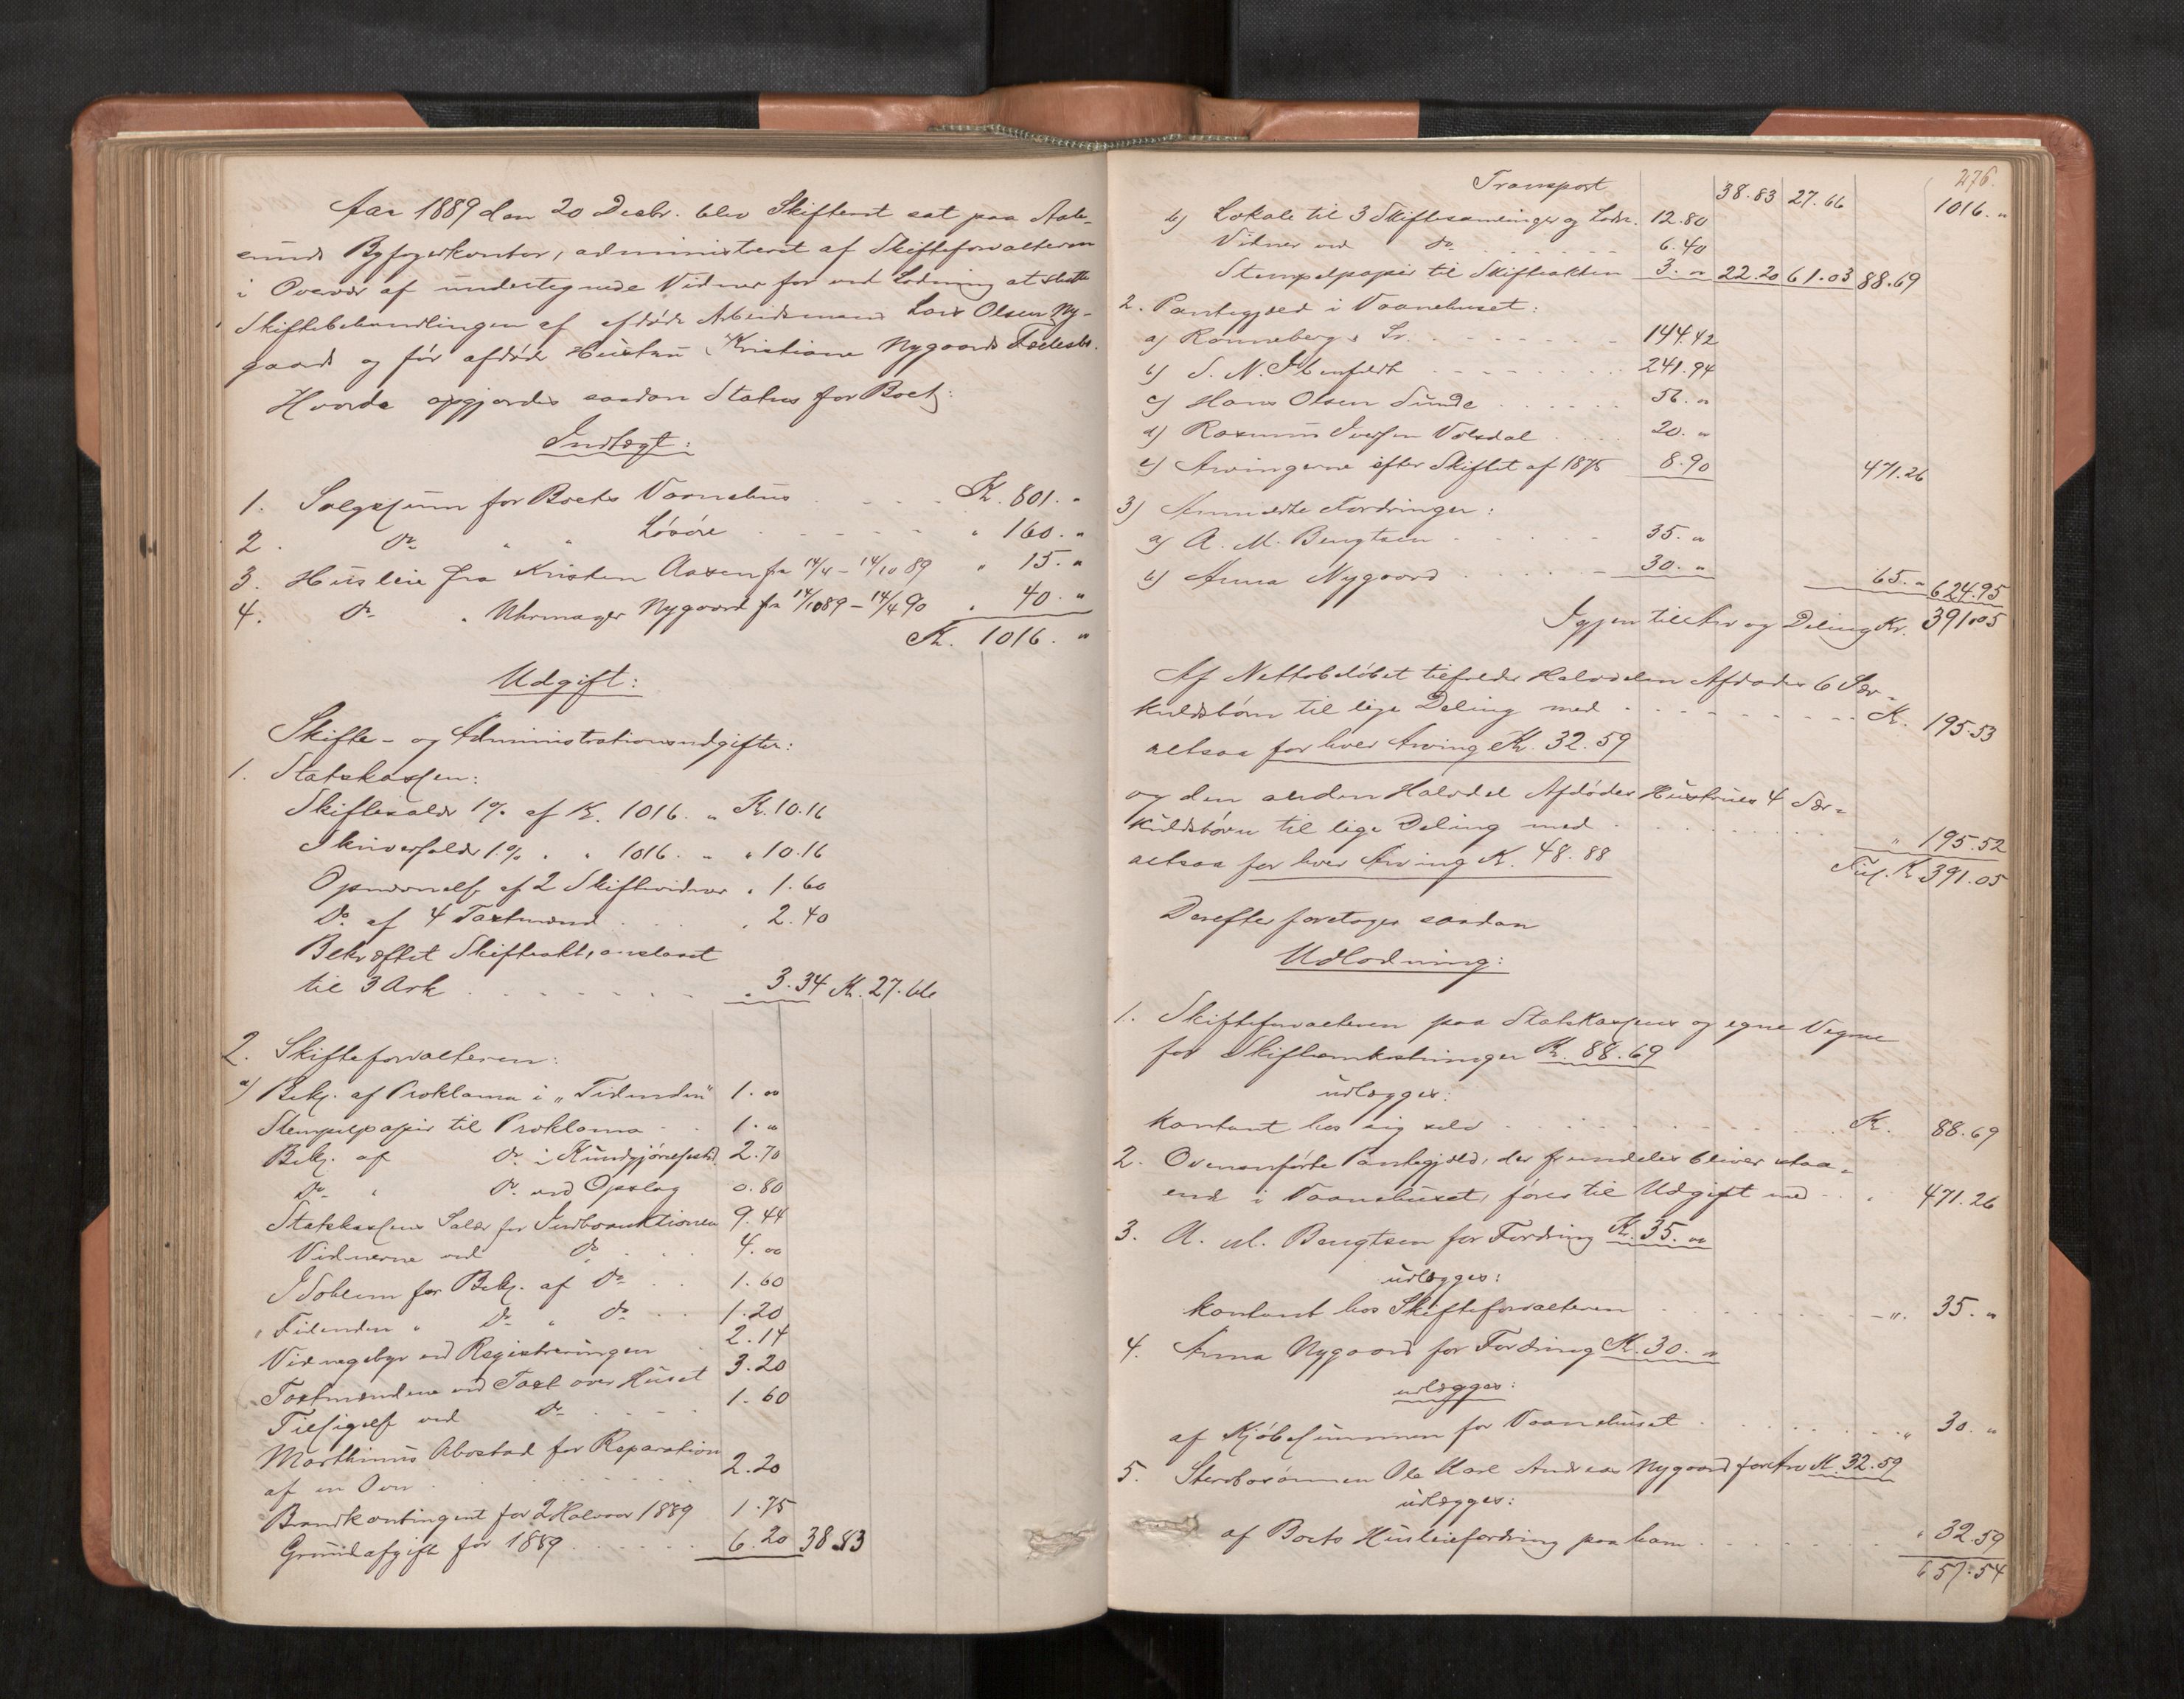 Aar 1889 den 20 Decbr. blev Skifteret sat paa Aale-
sunds Byfogedkontor, administreret af Skifteforvalteren
i Overvær af undertegnede Vidner for ved Lodning at slutte
Skiftebehandlingen af afdøde Arbeidsmand Lars Olsen Ny-
gaards og før afdøde Hustru Kristiane Nygaards Fællesbo.
Hvorda opgjordes saadan Status for Boet:
Indtægt:
1. Salgssum for Boets Vaanehus . . . Kr. 801. "
2. Do " " Løsøre . . . " 160. "
3. Husleie fra Kristen Aasen fra 14/4 - 14/10 89 " 15. "
4. Do " Uhrmager Nygaard fra 14/10 89 - 14/4 90 " 40. "
Kr. 1016. "
Udgift:
Skifte- og Administrationsudgifter:
1. Statskassen:
Skiftesalær 1% af Kr. 1016. " Kr. 10.16
Skriversalær 1% " " 1016. " " 10.16
Opnævnelse af 2 Skiftevidner " 1.60
Do af 4 Taxtmænd . . . " 2.40
Bekræftet Skifteakt, anslaaet
til 3 Ark . . . " 3.34 Kr. 27.66
2. Skifteforvalteren:
a) Bekj. af Proklama i "Tidenden" 1. "
Stempelpapir til Proklama . . 1. "
Bekj. af Do i Kundgjørelsestid. 2.70
Do " Do ved Opslag 0.80
Statskassens Salær for Indboauktionen 9.44
Vidnerne ved Do . . 4. "
J Solem for Bekj. af Do . . 1.60
"Tidenden" Do " Do . . 1.20
Vidnegebyr ved Registreringen 2.14
Taxtmændene ved Taxt over Huset 3.20
Tilsigelse ved Do . . . 1.60
Marthinus Abostad for Reparation
af en Ovn . . . 2.20
Brandkontingent for 2 Halvaar 1889 1.75
Grundafgift for 1889 . . . 6.20 38.83
276.
Transport 38.83 27.66 1016. "
b) Lokale til 3 Skiftesamlinger og Lodn. 12.80
Vidner ved Do . . . 6.40
Stempelpapir til Skifteakten 3. " 22.20 61.03 88.69
2. Pantegjæld i Vaanehuset:
a) Rønneberg Sr. . . . 144.42
b) S. N. . . . 241.94
c) Hans Olsen Sunde . . . 56. "
d) Rasmus Iversen Volsdal . . . 20. "
e) Arvingerne efter Skiftet af 1875 8.90 471.26
3) Anmeldte Fordringer:
a) A. M. Bengtsen . . . 35. "
b) Anna Nygaard . . . 30. " 65. " 624.95
Igjen til Arv og Deling Kr. 391.05
Af Nettobeløbet tilfalder Halvdelen Afdødes 6 Sær-
kuldsbørn til lige Deling med . . . Kr. 195.53
altsaa for hver Arving Kr. 32.59
og den anden Halvdel Afdødes Hustrues 4 Sær-
kuldsbørn til lige Deling med . . . " 195.52
altsaa for hver Arving Kr. 48.88 Tils. Kr. 391.05
Derefter foretoges saadan
Udlodning:
1. Skifteforvalteren paa Statskassens og egne Vegne
for Skifteomkostninger Kr. 88.69
udlægges:
kontant hos sig selv . . . Kr. 88.69
2. Ovenanførte Pantegjæld, der fremdeles bliver staa-
ende i Vaanehuset, føres til Udgift med . . " 471.26
3. A. M. Bengtsen for Fordring Kr. 35. "
udlægges:
kontant hos Skifteforvalteren . . . " 35. "
4. Anna Nygaard for Fordring Kr. 30. "
udlægges:
af Kjøbesummen for Vaanehuset . . . " 30. "
5. Stervbosønnen Ole Karl Andreas Nygaard for Arv Kr. 32.59
udlægges:
af Boets Husleiefordring paa ham . . . " 32.59
657.54